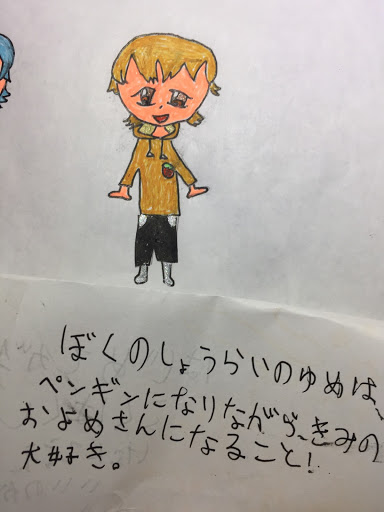 ぼくのしょうらいのゆめは、
ペンギンになりながら、きみの
およめさんになること!
大好き。